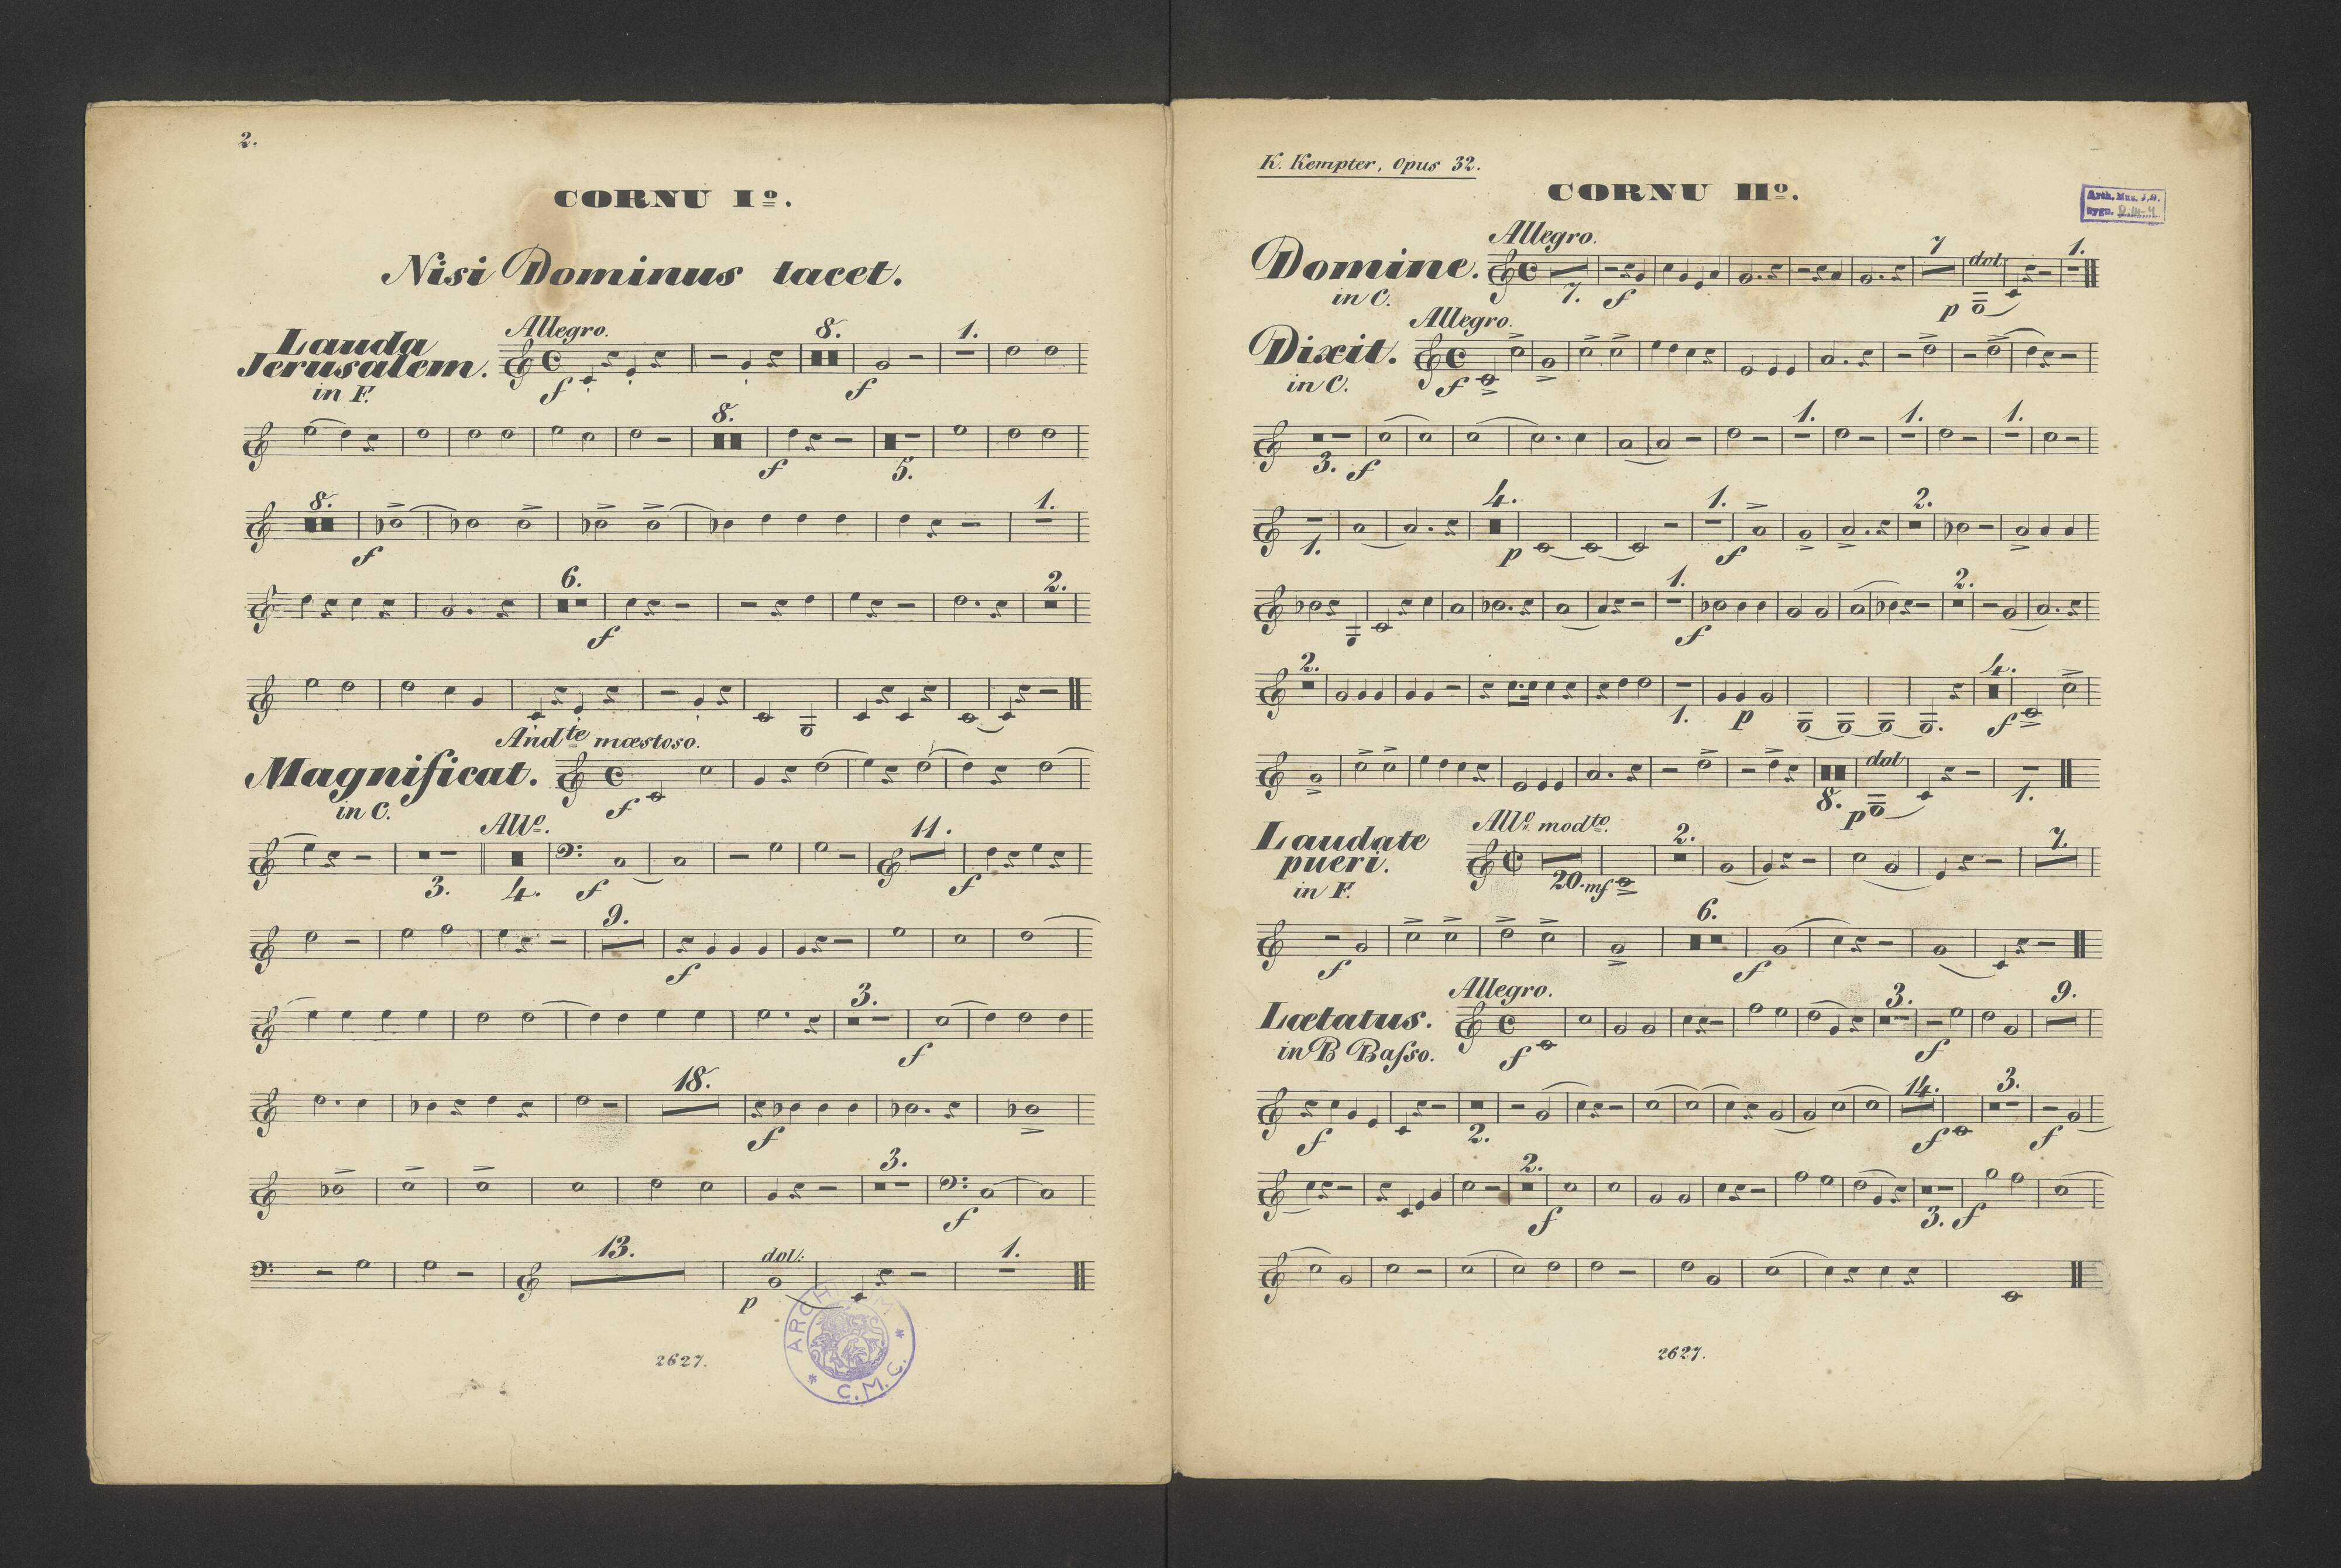 2.
CORNU Iº.
Nisi Dominus tacet.
Allegro.
Lauda
Jerusalem.
in F.
f
8.
f
1.
8.
f
5.
8.
f
1.
6.
f
2.
Andte mæstoso.
Magnificat.
in C.
f
Allº.
3.
4.
f
11.
f
9.
f
3.
f
18.
f
3.
f
13.
dol:
p
1.
ARCHIVUM
* C.M.C. *
2627.
K. Kempter, Opus 32.
CORNU IIº.
Arch. Mus. J.G.
sygn.
Allegro.
Domine.
in C.
7.
f
7
dol
p
1.
Allegro.
Dixit.
in C.
f
3.
f
1.
1.
1.
1.
4.
p
1.
f
2.
1.
f
2.
2.
1.
p
4.
f
8.
dol
p
1.
Laudate
pueri.
in F.
Allº. modto.
20.
mf
2.
7.
f
6.
f
Allegro.
Lætatus.
in B Baſso.
f
3.
f
9.
f
2.
14.
f
3.
f
2.
f
3.
f
2627.